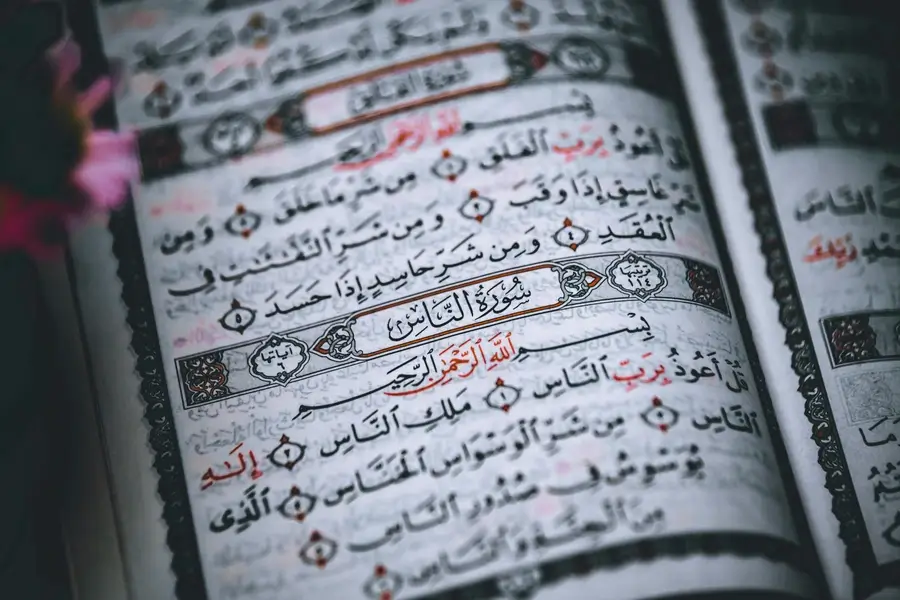 سُورَةُ الفَلَقِ
بِسْمِ اللَّهِ الرَّحْمَٰنِ الرَّحِيمِ
قُلْ أَعُوذُ بِرَبِّ الْفَلَقِ ١ مِن شَرِّ مَا خَلَقَ ٢ وَمِن
شَرِّ غَاسِقٍ إِذَا وَقَبَ ٣ وَمِن شَرِّ النَّفَّٰثَٰتِ فِى
الْعُقَدِ ٤ وَمِن شَرِّ حَاسِدٍ إِذَا حَسَدَ ٥
ترتيبها ١١٤ سُورَةُ النَّاسِ آياتها ٦
بِسْمِ اللَّهِ الرَّحْمَٰنِ الرَّحِيمِ
قُلْ أَعُوذُ بِرَبِّ النَّاسِ ١ مَلِكِ النَّاسِ ٢ إِلَٰهِ
النَّاسِ ٣ مِن شَرِّ الْوَسْوَاسِ الْخَنَّاسِ ٤ الَّذِى
يُوَسْوِسُ فِى صُدُورِ النَّاسِ ٥
مِنَ الْجِنَّةِ وَالنَّاسِ ٦
النَّاسَ
رَبِّكَ